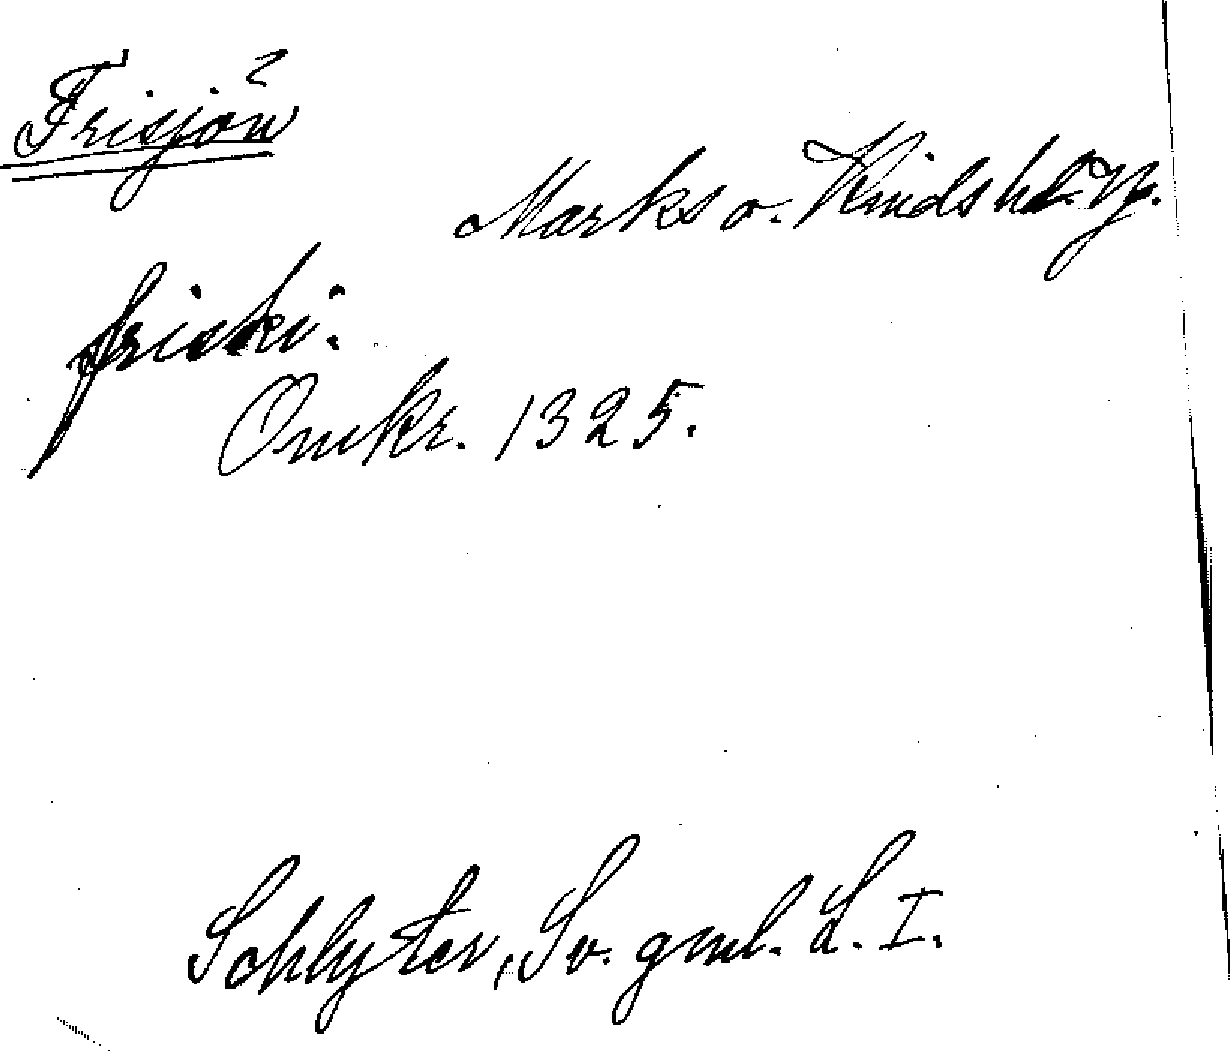 Frisjön ?
Marks o. Kinds hd. Vg.
friski.
Omkr. 1325.
Schlyter, Sv. gml. L. I.